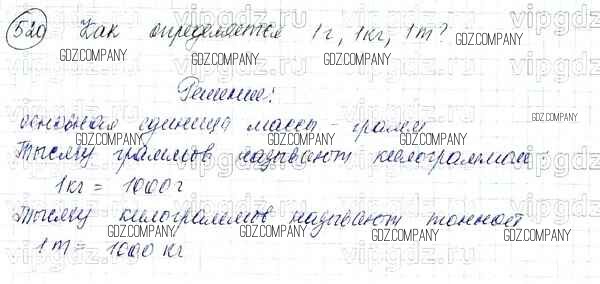 520 Как определяется 1г, 1кг, 1т?
Решение:
основная единица массы - грамм
Тысячу граммов называют килограммом.
1кг = 1000г
Тысячу килограммов называют тонной
1т = 1000 кг